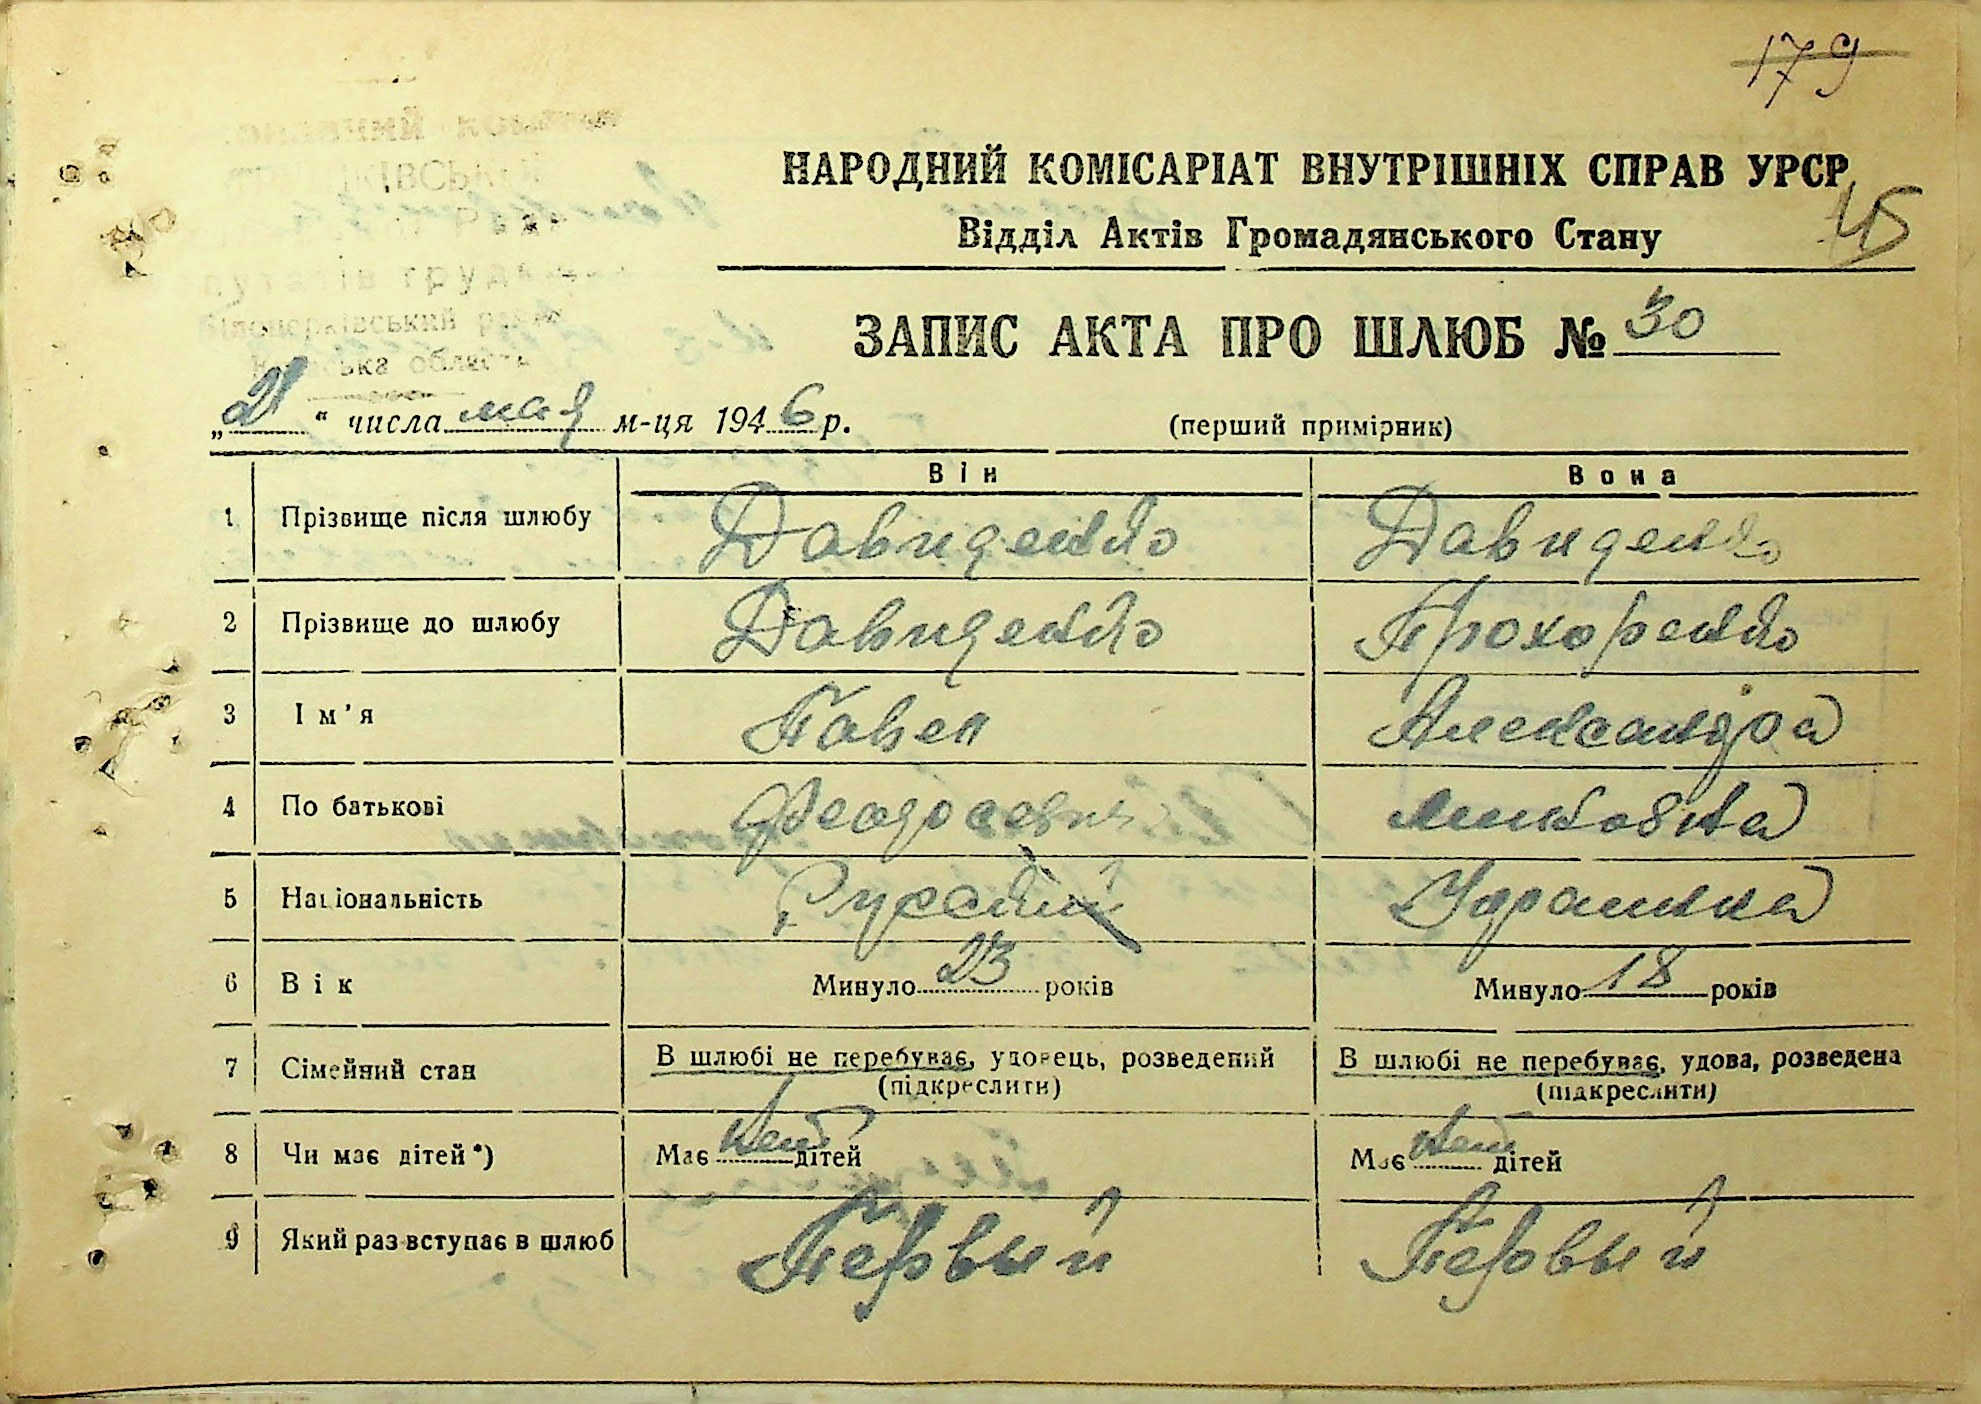 179
НАРОДНИЙ КОМІСАРІАТ ВНУТРІШНІХ СПРАВ УРСР
45
Відділ Актів Громадянського Стану
ЗАПИС АКТА ПРО ШЛЮБ № 30
„21“ числа мая м-ця 1946 р. (перший примірник)
Він Вона
1 Прізвище після шлюбу Давиденко Давиденко
2 Прізвище до шлюбу Давиденко Прохоренко
3 Ім'я Павел Александра
4 По батькові Феодосевич
5 Національність Русский Украинка
6 Вік Минуло 23 років Минуло 18 років
7 Сімейний стан В шлюбі не перебуває, удовець, розведений В шлюбі не перебуває, удова, розведена
(підкреслити) (підкреслити)
8 Чи має дітей*) Має нет дітей Має нет дітей
9 Який раз вступає в шлюб Первый Первый